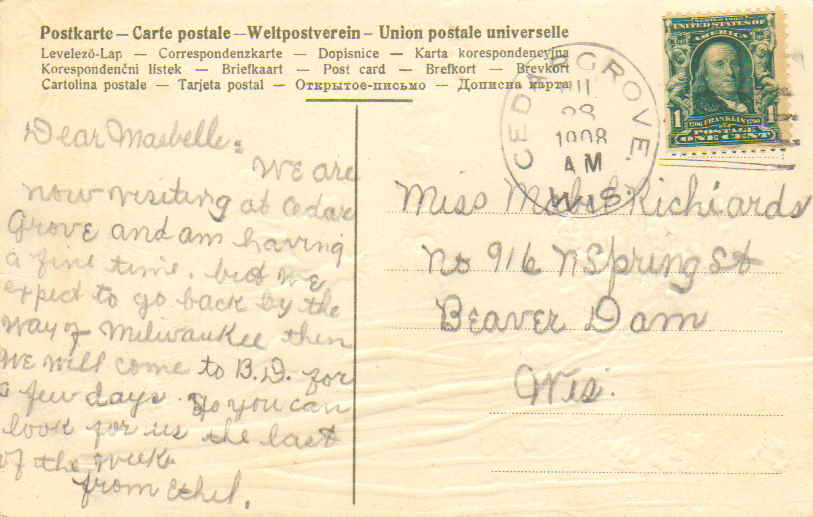 Postkarte – Carte postale – Weltpostverein – Union postale universelle
Levelező-Lap — Correspondenzkarte — Dopisnice — Karta korespondencyjna
Korespondenční lístek — Briefkaart — Post card — Brefkort — Brevkort
Cartolina postale — Tarjeta postal — Открытое-письмо — Дописна карта
CEDAR GROVE,
1908
AM
WIS.
UNITED STATES OF
AMERICA
1 FRANKLIN 1
POSTAGE
ONE CENT
Dear Maebelle:
We are
now visiting at Cedar
Grove and am having
a fine time. but we
expect to go back by the
way of Milwaukee then
we will come to B.D. for
a few days. So you can
look for us the last
of the week
from Ethel.
Miss Mabel Richiards
No 916 N Spring St
Beaver Dam
Wis.